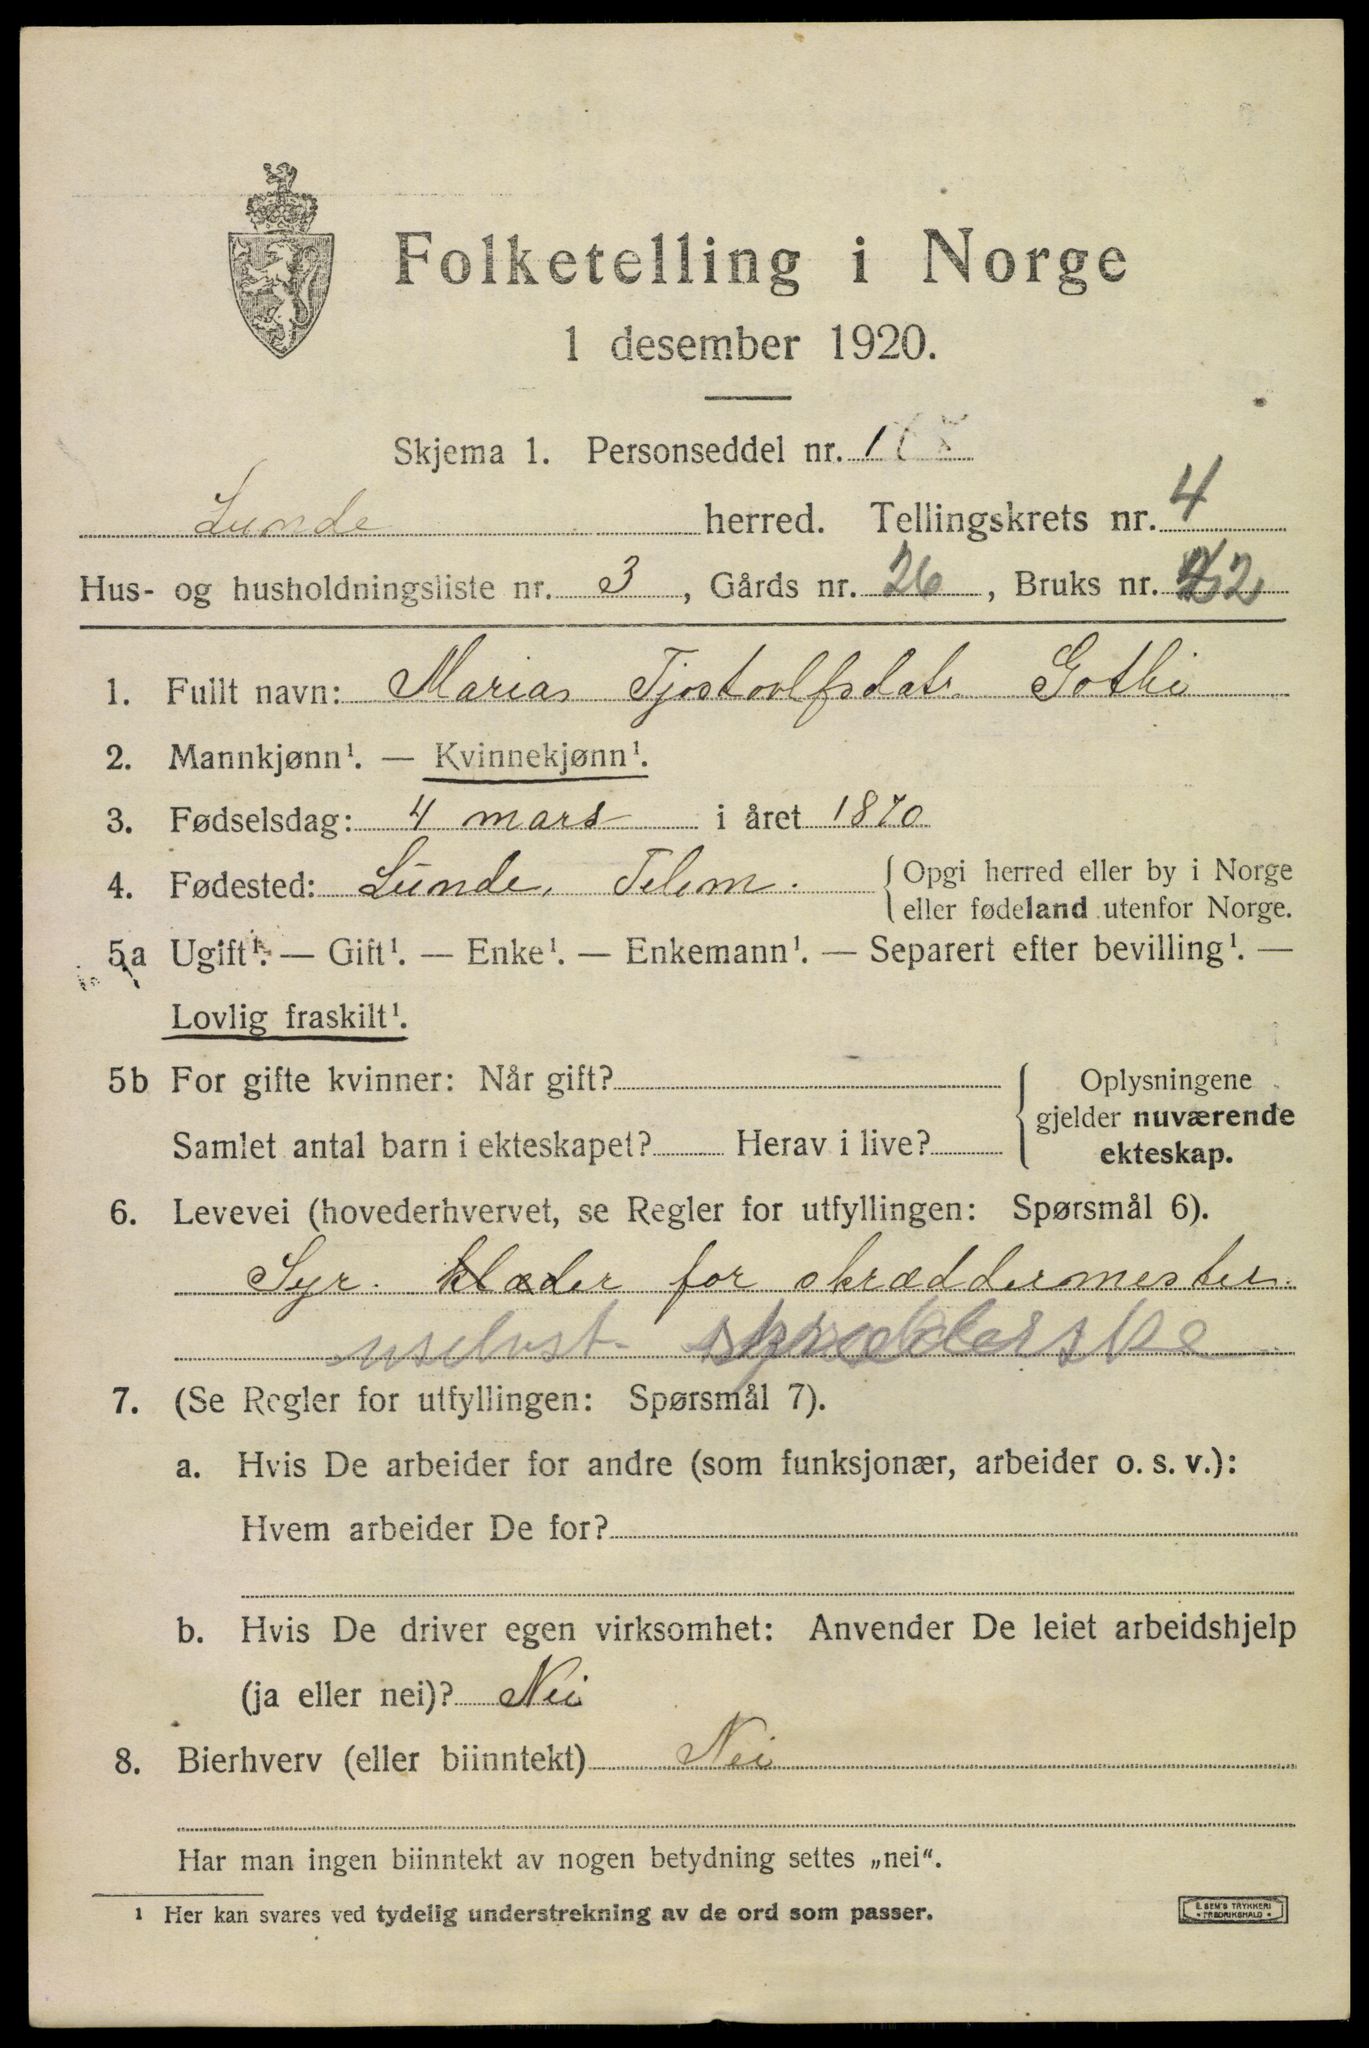 Folketelling i Norge
1 desember 1920.
Skjema 1. Personseddel nr. 1
Lunde herred. Tellingskrets nr. 4
Hus- og husholdningsliste nr. 3, Gårds nr. 26, Bruks nr. 2
1. Fullt navn: Maria Tjostolfsdatr. Gothi
2. Mannkjønn¹. — Kvinnekjønn¹.
3. Fødselsdag: 4 mars i året 1870
4. Fødested: Lunde, Telem. { Opgi herred eller by i Norge
eller fødeland utenfor Norge.
5a Ugift¹. — Gift¹. — Enke¹. — Enkemann¹. — Separert efter bevilling¹. —
Lovlig fraskilt¹.
5b For gifte kvinner: Når gift? { Oplysningene
gjelder nuværende
Samlet antal barn i ekteskapet? Herav i live?
ekteskap.
6. Levevei (hovederhvervet, se Regler for utfyllingen: Spørsmål 6).
Syr. klæder for skræddermester.
uselvst.
7. (Se Regler for utfyllingen: Spørsmål 7).
a. Hvis De arbeider for andre (som funksjonær, arbeider o. s. v.):
Hvem arbeider De for?
b. Hvis De driver egen virksomhet: Anvender De leiet arbeidshjelp
(ja eller nei)? Nei
8. Bierhverv (eller biinntekt) Nei
Har man ingen biinntekt av nogen betydning settes „nei“.
¹ Her kan svares ved tydelig understrekning av de ord som passer.
E. SEM'S TRYKKERI
• FREDRIKSHALD •